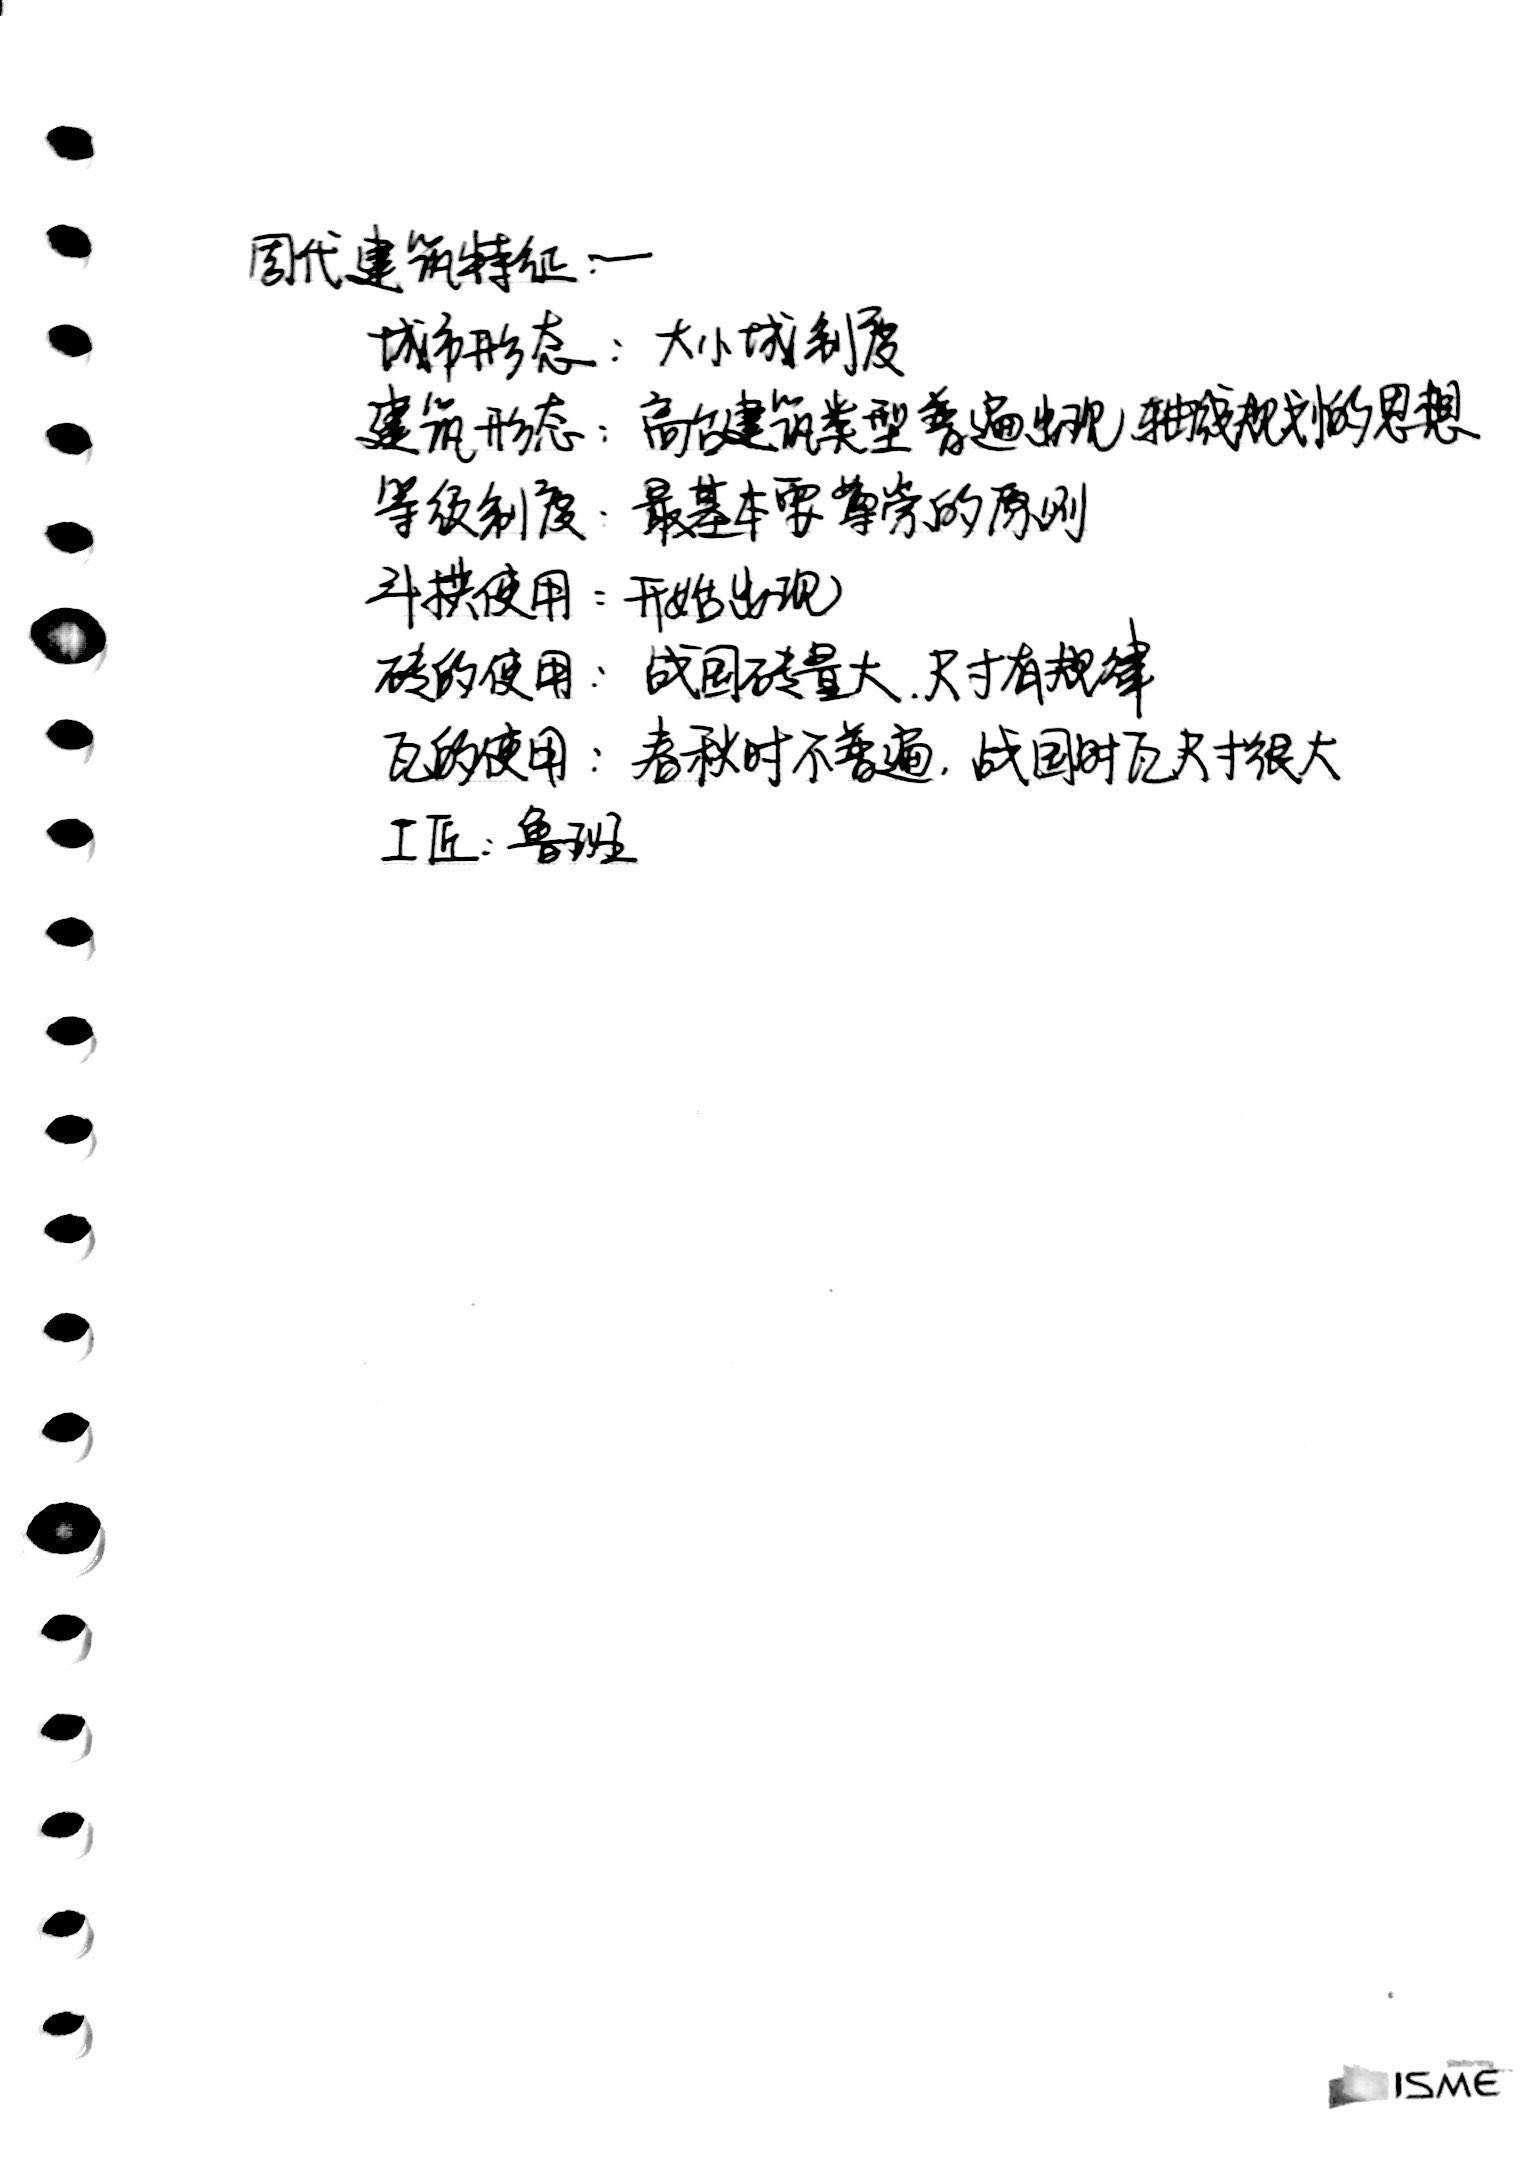 周代建筑特征：一
城市形态：大小城制度
建筑形态：高台建筑类型普遍出现 轴线规划的思想
等级制度：最基本要尊崇的原则
斗拱使用：开始出现
砖的使用：战国砖量大.尺寸有规律
瓦的使用：春秋时不普遍，战国时瓦尺寸很大
工匠：鲁班
ISME